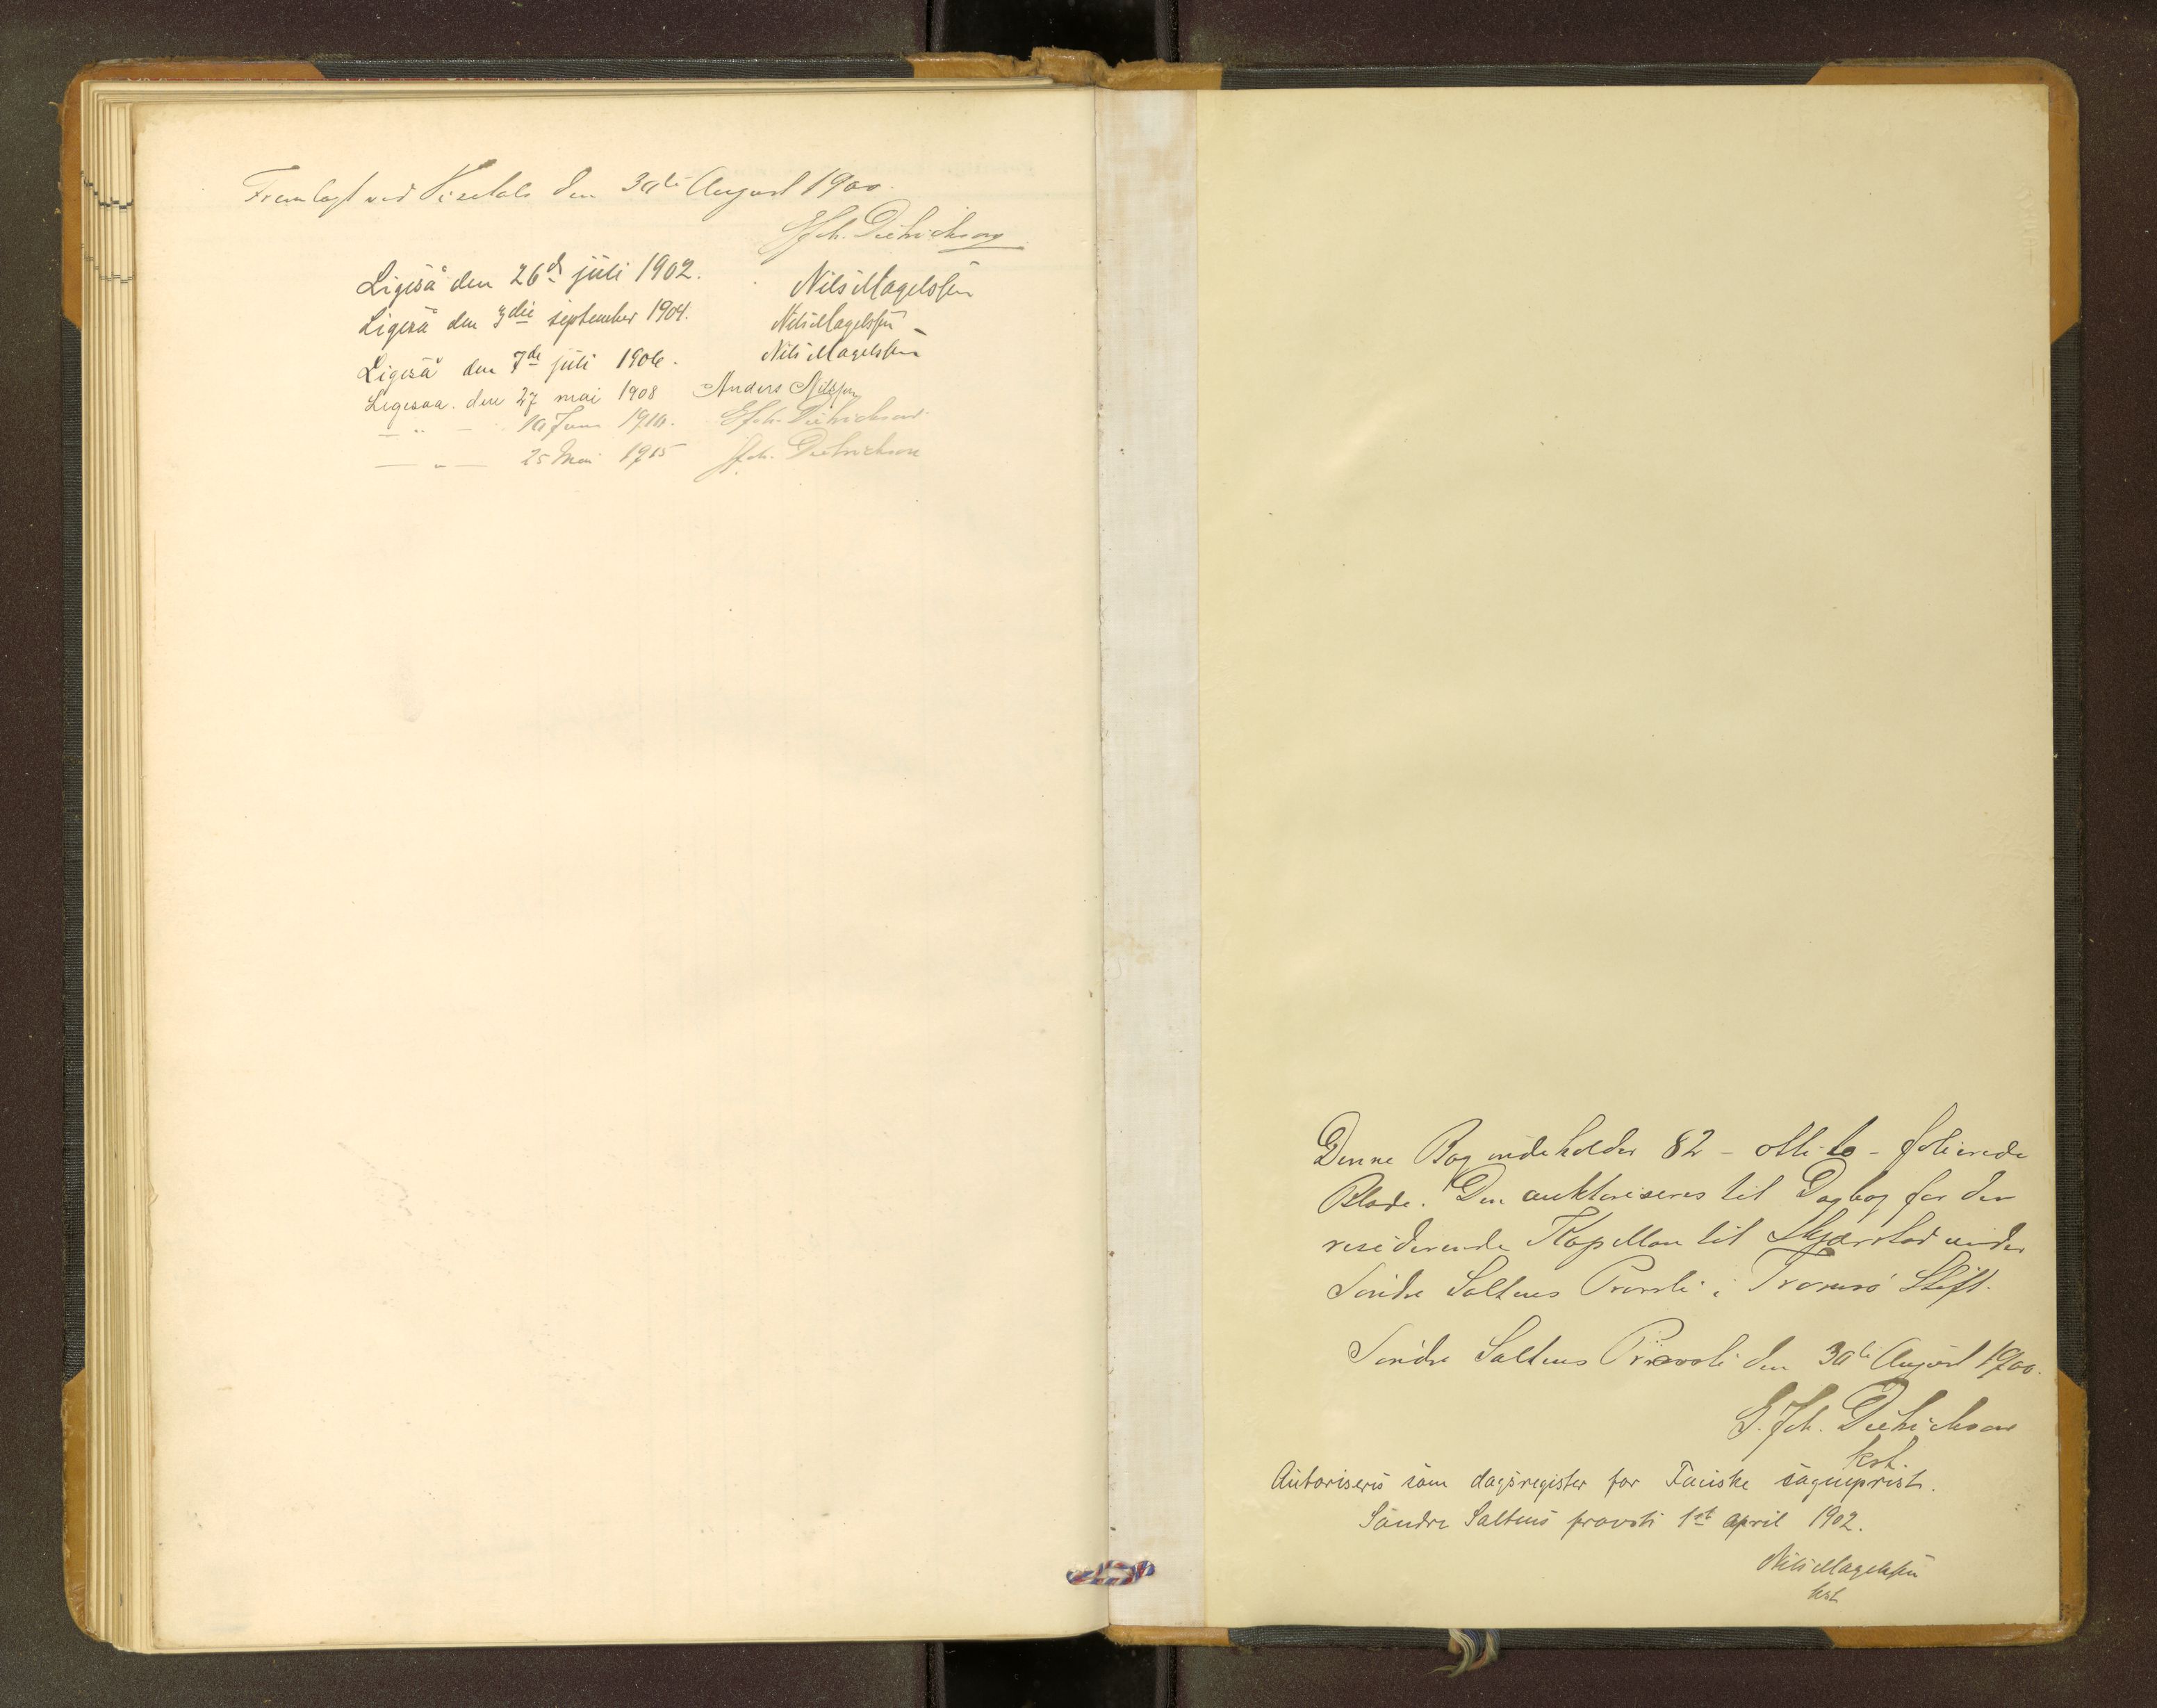 Fremlagt ved Visitats den 30te August 1900.
E Joh. Dietrichson
Ligeså den 26de juli 1902. Nils Magelssen
Ligeså den 3die september 1904. Nils Magelssen
Ligeså den 7de juli 1906. Nils Magelssen
Ligesaa den 27 mai 1908 Anders Nilssen
— " — 10 Juni 1910. E Joh. Dietrichson
— " — 25 Mai 1915 Joh. Dietrichson
Denne Bog indeholder 82 - otti to - folierede
Blade. Den auktoriseres til Dagbog for den
residerende Kapellan til Skjærstad under
Søndre Saltens Provsti i Tromsø Stift.
Søndre Saltens Provsti den 30te August 1900.
E. Joh. Dietrichson
kst.
Autoriseres som dagsregister for Fauske sogneprest.
Søndre Saltens provsti 1st april 1902.
Nils Magelssen
kst